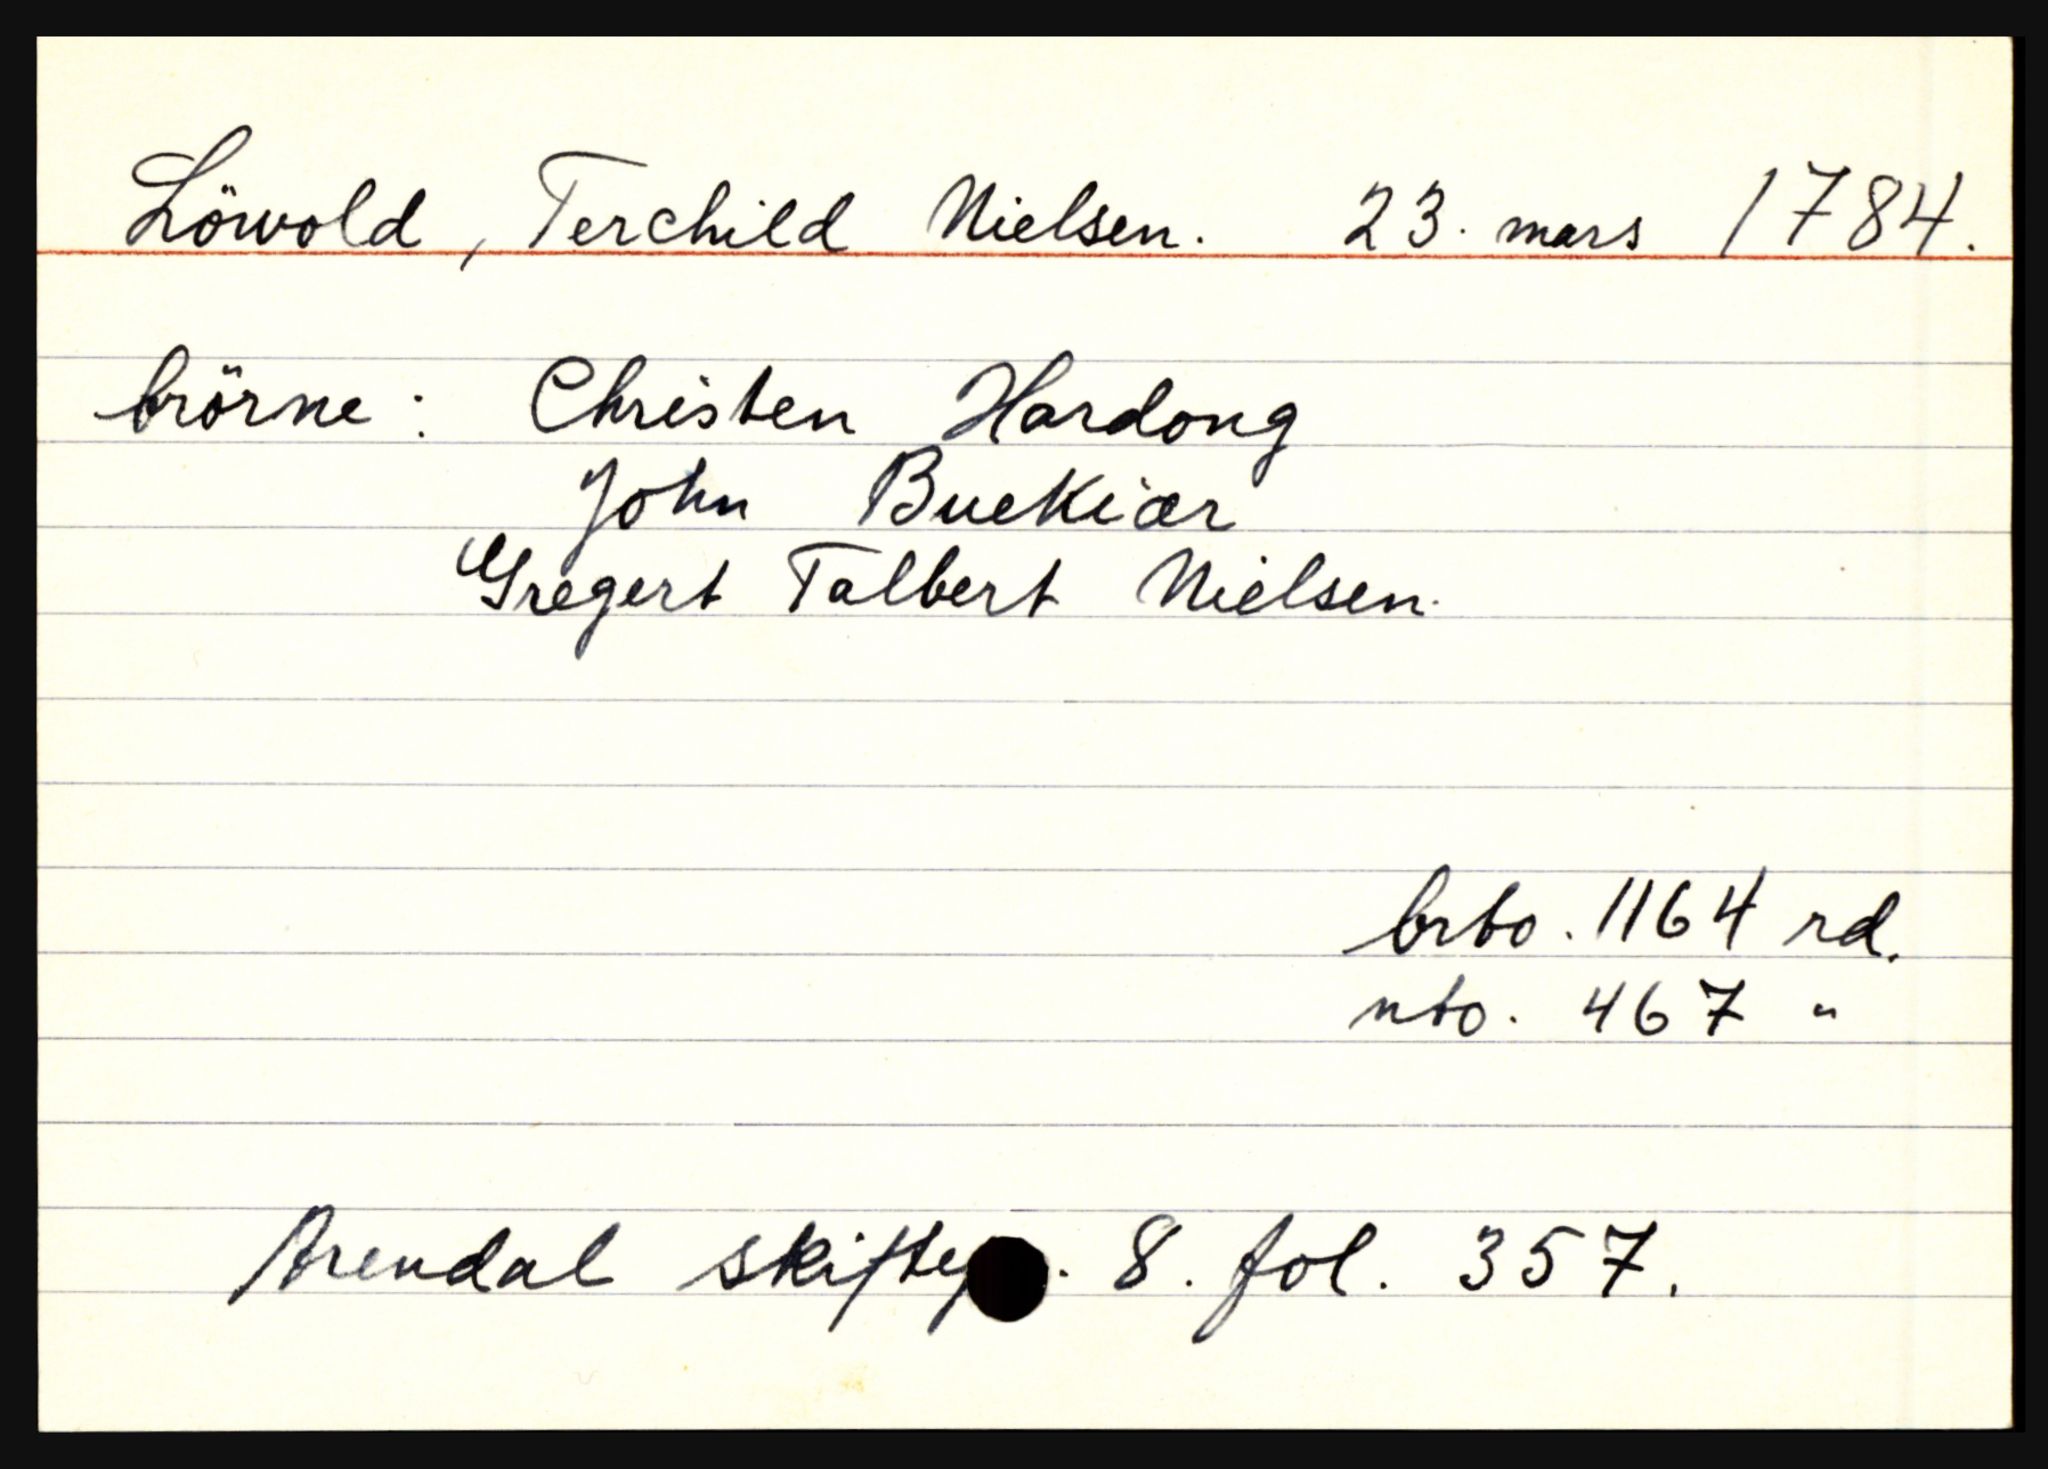 Löwold, Terchild Nielsen. 23. mars 1784.
börne: Christen Hardong
John Buekiær
Gregert Talbert Nielsen.
brto. 1164 rd.
nto. 467 "
Arendal . 8. fol. 357.